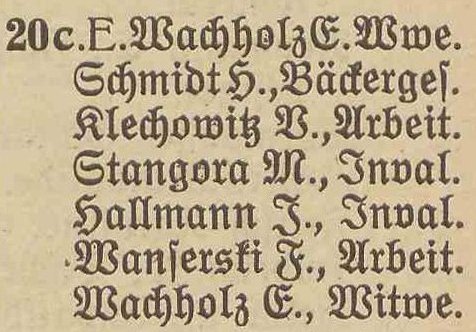 20c. E. Wachholz E. Wwe.
Schmidt H., Bäckergeſ.
Klechowitz V., Arbeit.
Stangora M., Inval.
Hallmann J., Inval.
Wanſerski F., Arbeit.
Wachholz E., Witwe.